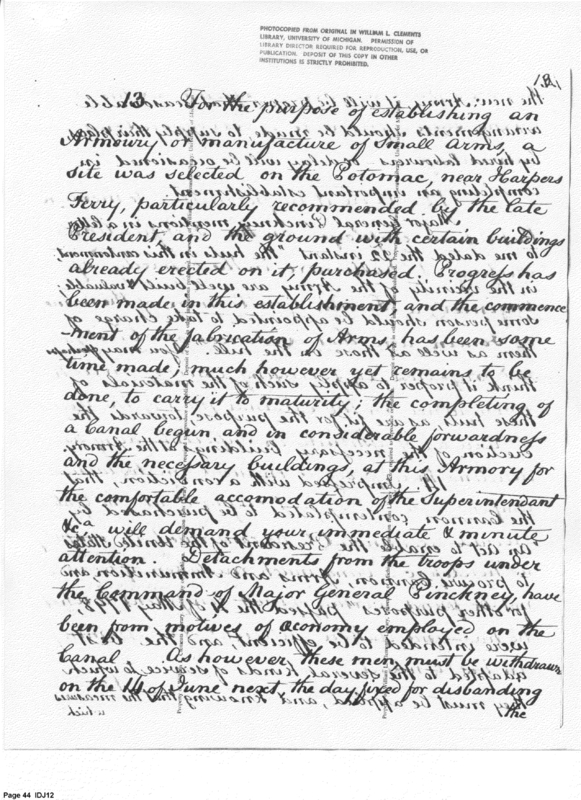 PHOTOCOPIED FROM ORIGINAL IN WILLIAM L. CLEMENTS
LIBRARY, UNIVERSITY OF MICHIGAN. PERMISSION OF
LIBRARY DIRECTOR REQUIRED FOR REPRODUCTION, USE, OR
PUBLICATION. DEPOSIT OF THIS COPY IN OTHER
INSTITUTIONS IS STRICTLY PROHIBITED.
13 For the purpose of establishing an
Armoury or manufacture of Small Arms, a
site was selected on the Potomac, near Harpers
Ferry, particularly recommended by the late
President, and the ground with certain buildings
already erected on it, purchased. Progress has
been made in this establishment, and the commence
-ment of the fabrication of Arms, has been some
time made; much however yet remains to be
done, to carry it to maturity; the completing of
a Canal begun and in considerable forwardness
and the necessary buildings, at this Armory for
the comfortable accomodation of the Superintendant
&ca will demand your immediate & minute
attention. Detachments from the troops under
the Command of Major General Pinckney, have
been from motives of œconomy employed on the
Canal. As however these men must be withdrawn
on the 14 of June next, the day fixed for disbanding
the
Page 44 IDJ12